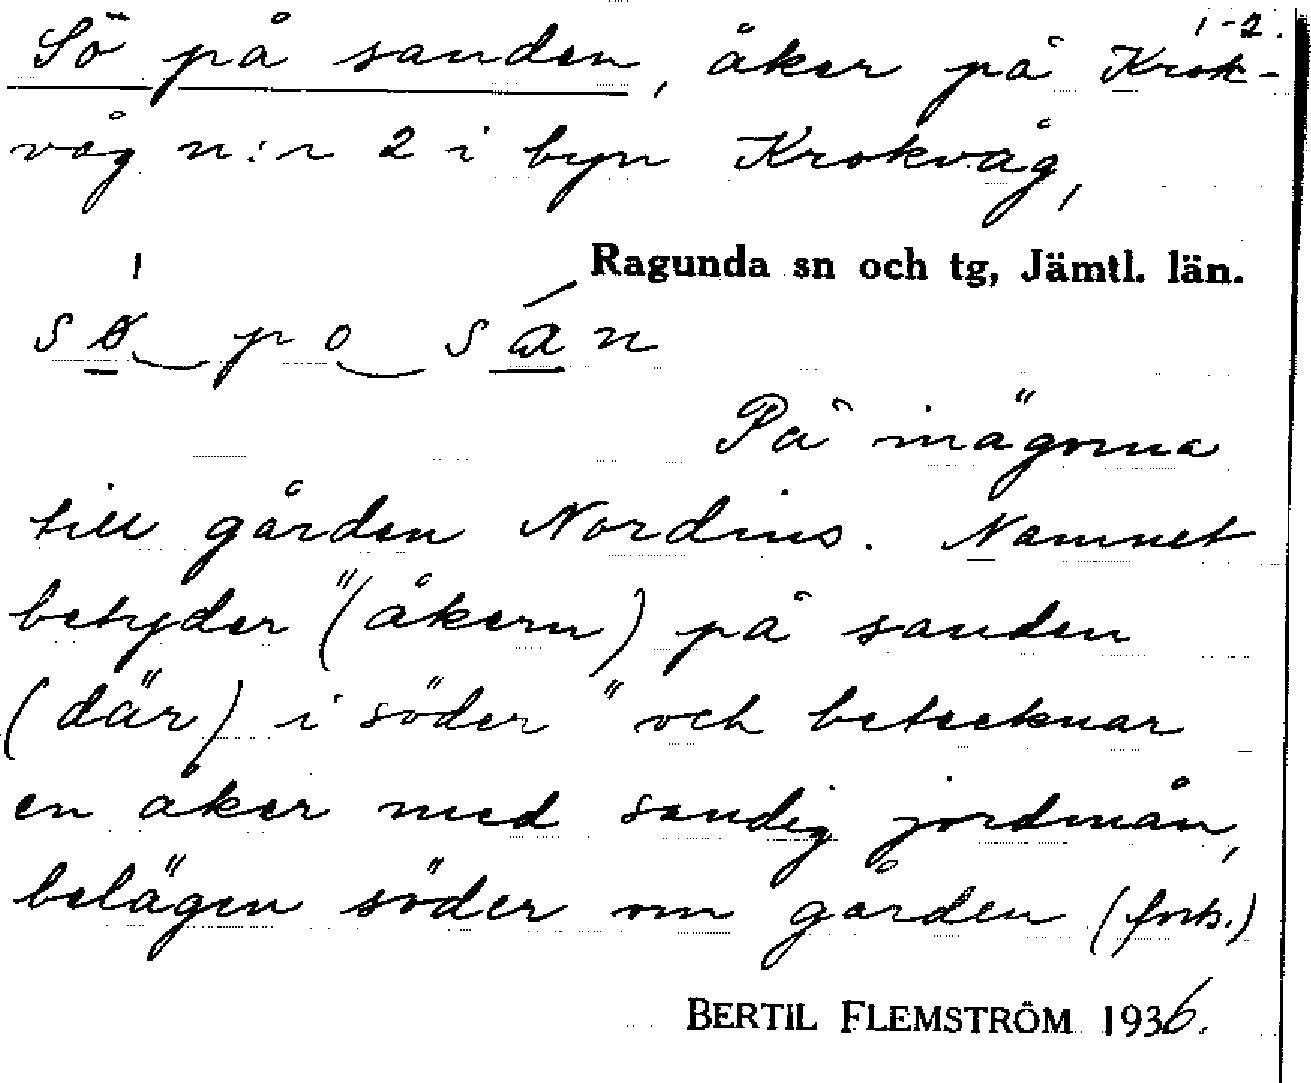 1-2.
Sö på sanden, åker på Krok-
våg n:r 2 i byn Krokvåg,
Ragunda sn och tg, Jämtl. län.
sø po sán
På inägorna
till gården Nordins. Namnet
betyder "(åkern) på sanden
(där) i söder" och betecknar
en åker med sandig jordmån,
belägen söder om gården (forts.)
BERTIL FLEMSTRÖM 1936.